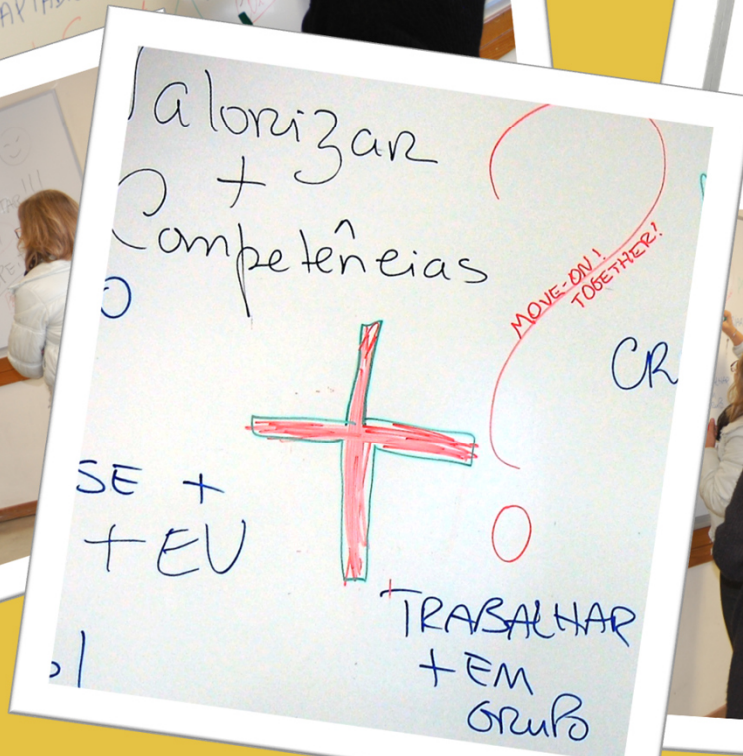 alorizar
+
Competências
MOVE-ON!
TOGETHER!
O
CR
SE +
+ EU
TRABALHAR
+ EM
GRUPO